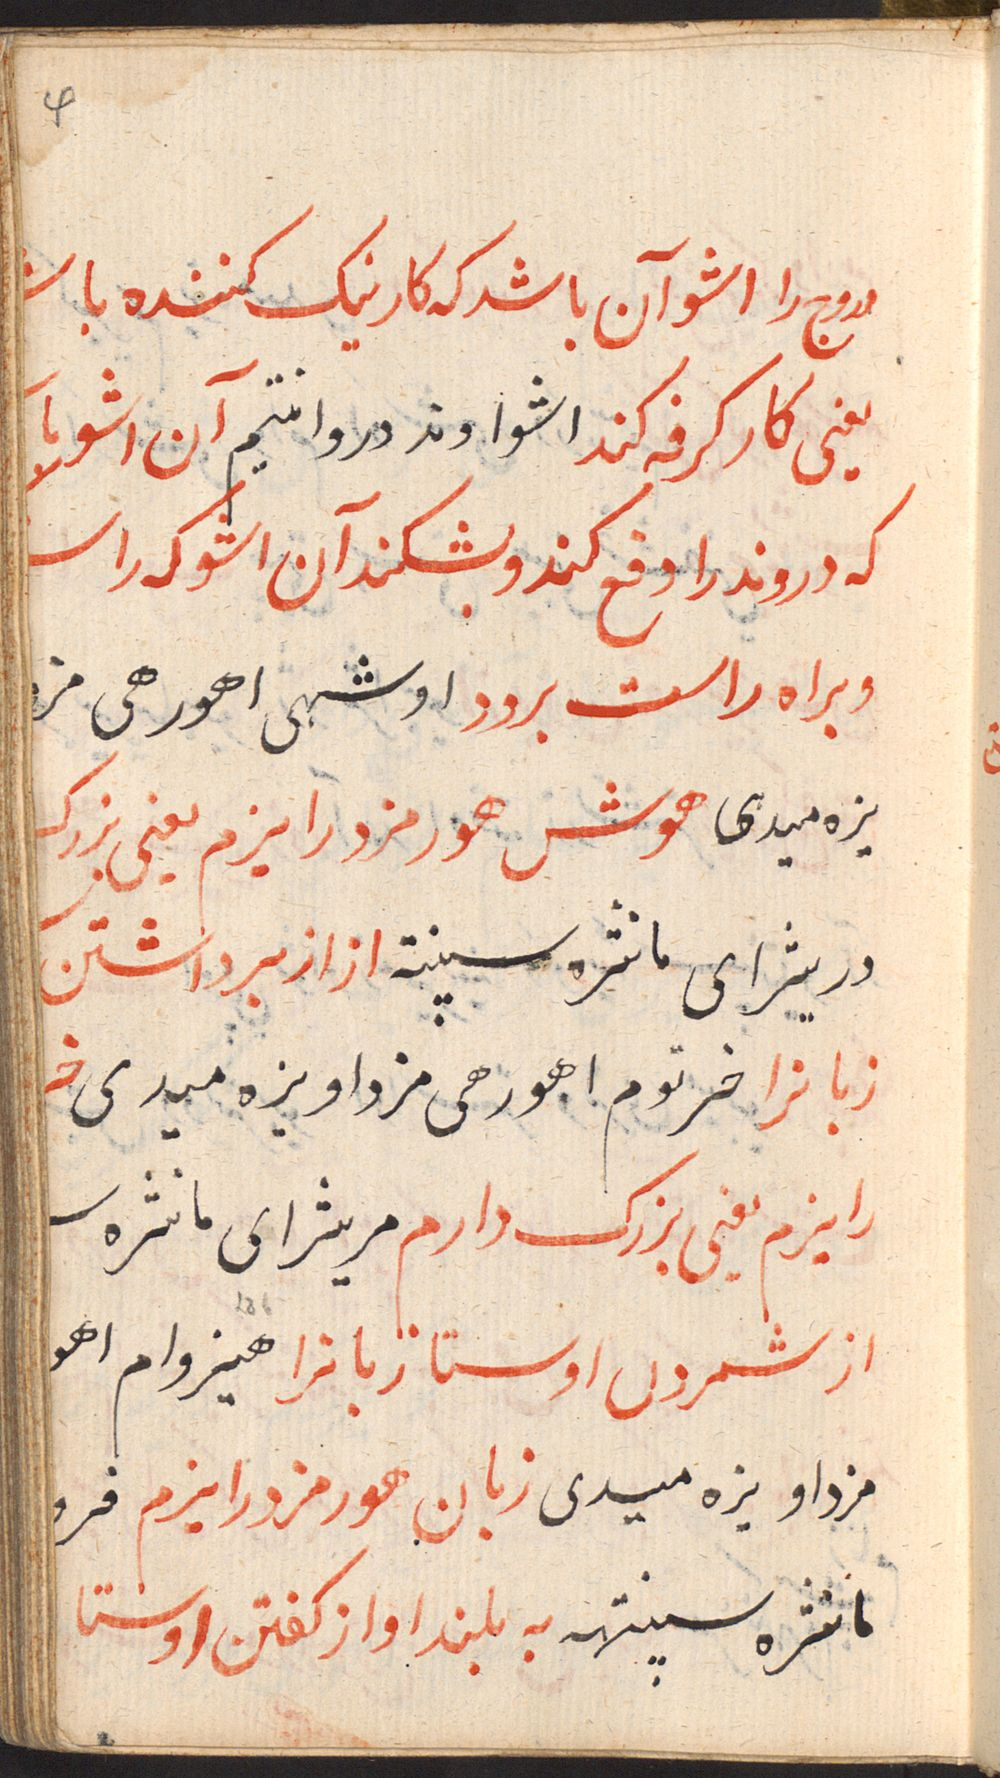 ۴
دروج را اشو آن باشد که کار نیک کننده باش
یعنی کار کرفه کند اشوا وند دروانتیم آن اشو با
که دروند را دفع کند و بشکند آن اشو که راس
و براه راست برود اوشهی اهورهی مزد
یزه میدی هوش هورمزد را یزم یعنی بزرک
دریثرای مانثره سپنته از از برداشتن
زبانرا خرتوم اهورهی مزداو یزه میدی خر
را یزم یعنی بزرک دارم مریثرای مانثره س
از شمردن اوستا زبانرا هیزوام اهو
مزداو یزه میدی زبان هورمزد را یزم فرو
مانثره سپنتهه به بلند اواز کفتن اوستا